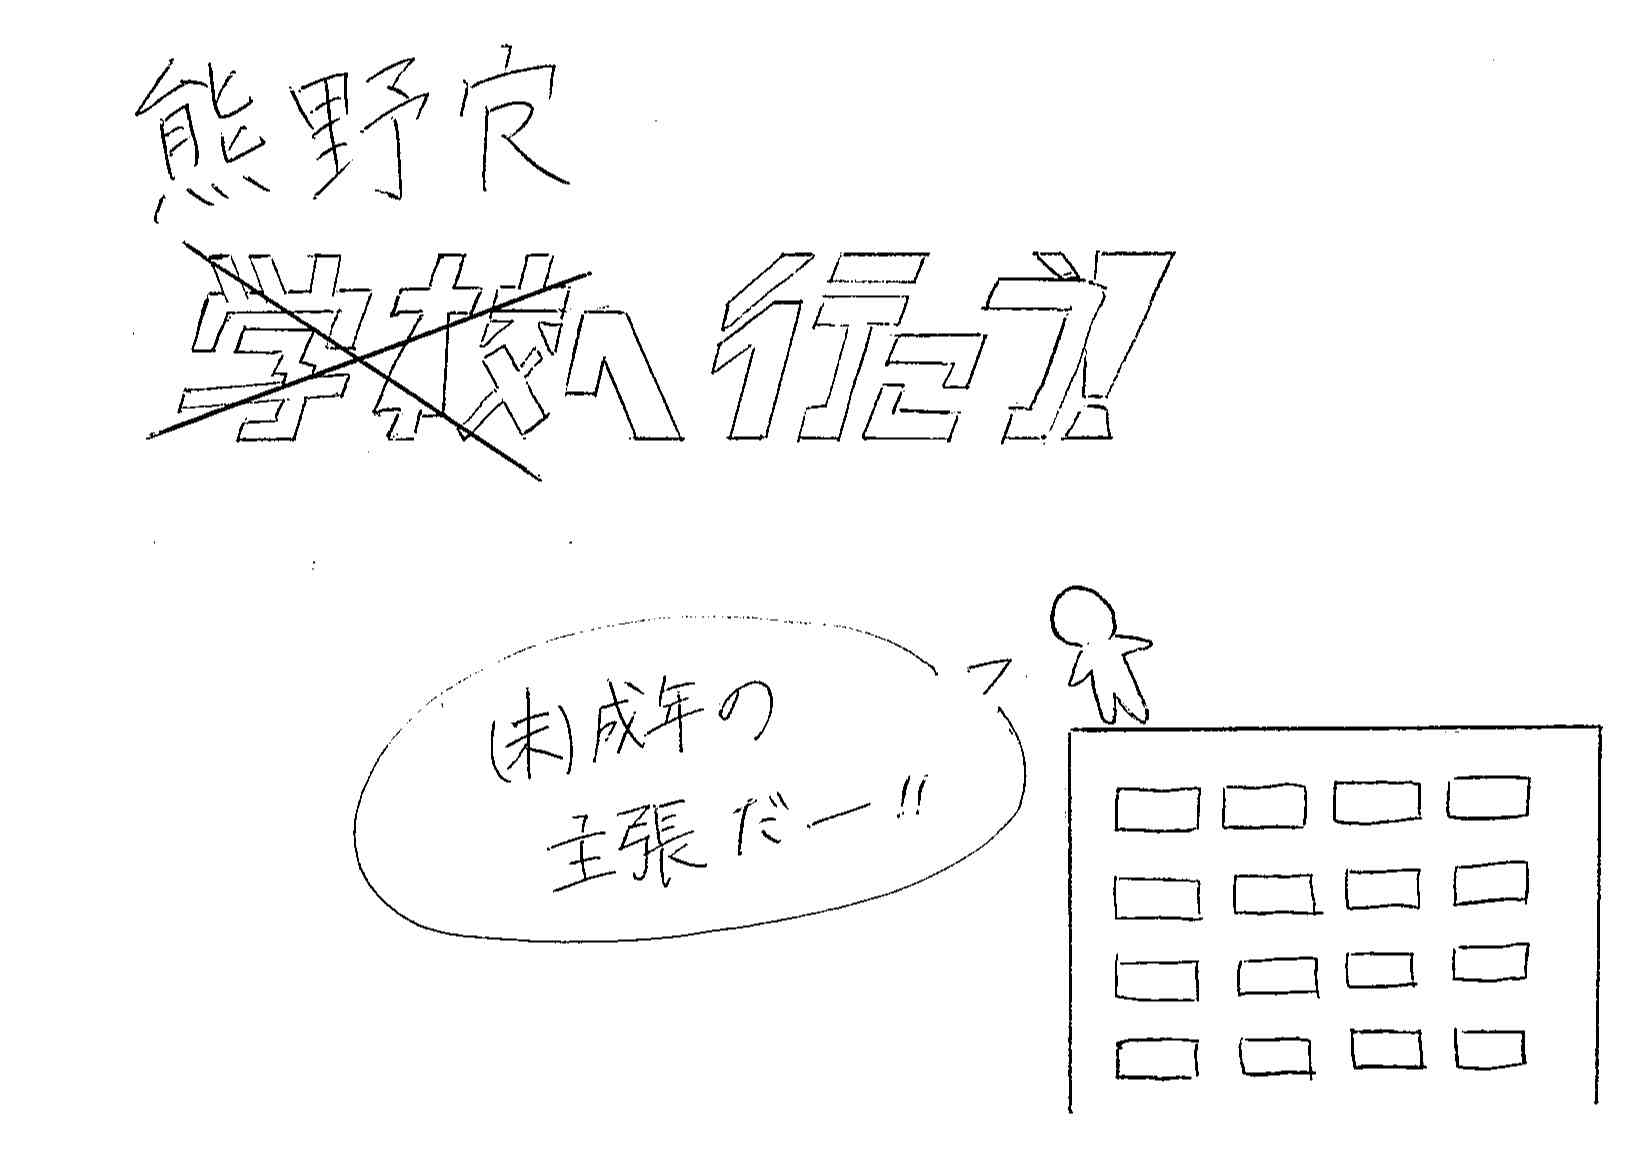 熊野寮
学校へ行こう!
(未)成年の
主張だー!!